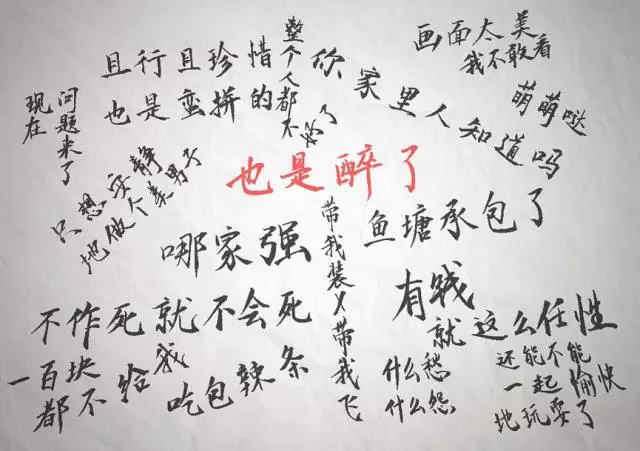 画面太美
我不敢看
且行且珍惜
整个人都不好了
你家里人知道吗
也是蛮拼的
萌萌哒
现在
问题来了
只想安静
地做个美男子
也是醉了
哪家强
带我装X带我飞
鱼塘承包了
不作死就不会死
有钱
就这么任性
一百块
都不给我
吃包辣条
什么愁
什么怨
还能不能
一起愉快
地玩耍了